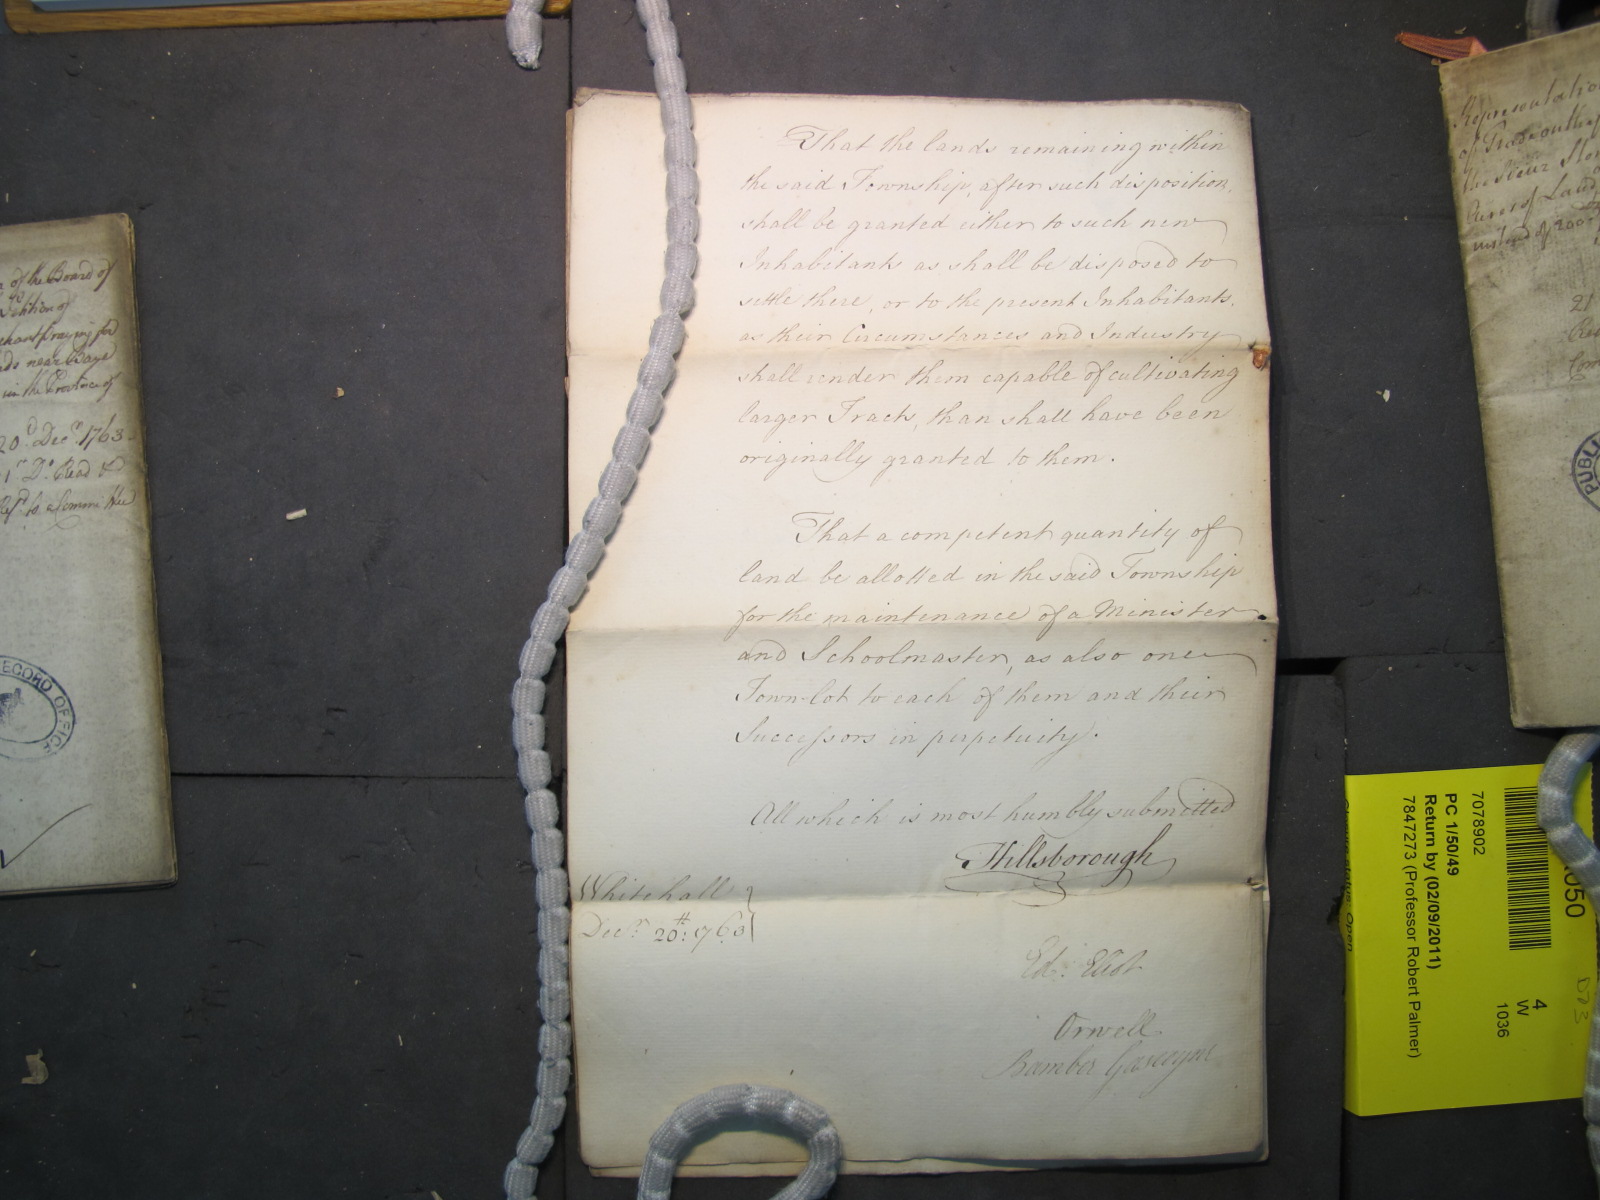 That the lands remaining within
the said Township, after such disposition,
shall be granted either to such new
Inhabitants as shall be disposed to
settle there, or to the present Inhabitants,
as their Circumstances and Industry
shall render them capable of cultivating
larger Tracts, than shall have been
originally granted to them.
That a competent quantity of
land be allotted in the said Township
for the maintenance of a Minister
and Schoolmaster, as also one
Town-lot to each of them and their
Successors in perpetuity.
All which is most humbly submitted
Hillsborough
Whitehall
Decr. 20th: 1763
Ed: Eliot
Orwell
Bamber Gascoyne
of the Board of
Petition of
chant praying for
ds near Baye
in the Province of
20d. Decr. 1763
Do. Read &
to a Committee
RECORD OFFICE
Representation
of Trade
of Land
instead of 200
21
PUBL
050
7078902
PC 1/50/49
Return by (02/09/2011)
7847273 (Professor Robert Palmer)
4
W
1036
D73
Closure status: Open